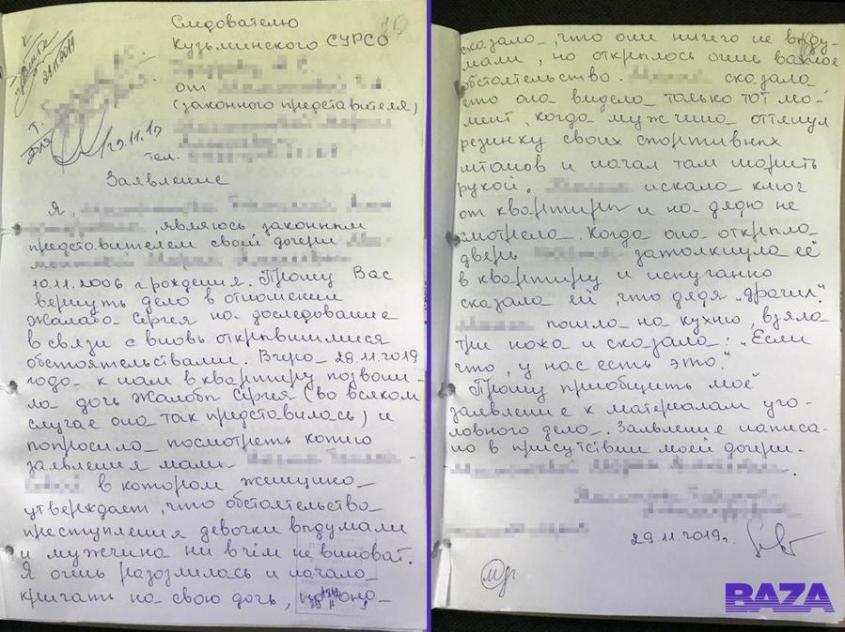 Следователю
Кузьминского СУРСО
от
(законного представителя)
29.11.19
тел.
Заявление
Я,
являюсь законным
представителем своей дочери
10.11.2006 г рождения. Прошу Вас
вернуть дело в отношении
Жалаба Сергея на доследование
в связи с вновь открывшимися
обстоятельствами. Вчера 29.11.2019
года к нам в квартиру позвони-
ла дочь Жалобы Сергея (во всяком
случае она так представилась) и
попросила посмотреть копию
заявления мамы
в котором женщина
утверждает, что обстоятельства
преступления девочки выдумали
и мужчина ни в чём не виноват.
Я очень разозлилась и начала
кричать на свою дочь, но она
сказала, что они ничего не выду-
мали, но открылось очень важное
обстоятельство. сказала
что она видела только тот мо-
мент, когда мужчина оттянул
резинку своих спортивных
штанов и начал там шарить
рукой. искала ключ
от квартиры и на дядю не
смотрела. Когда она открыла
дверь затолкнула её
в квартиру и испуганно
сказала ей, что дядя „драчил".
пошла на кухню, взяла
три ножа и сказала: „Если
что, у нас есть это."
Прошу приобщить моё
заявление к материалам уго-
ловного дела. Заявление написа-
но в присутствии моей дочери-
29.11.2019г.
BAZA